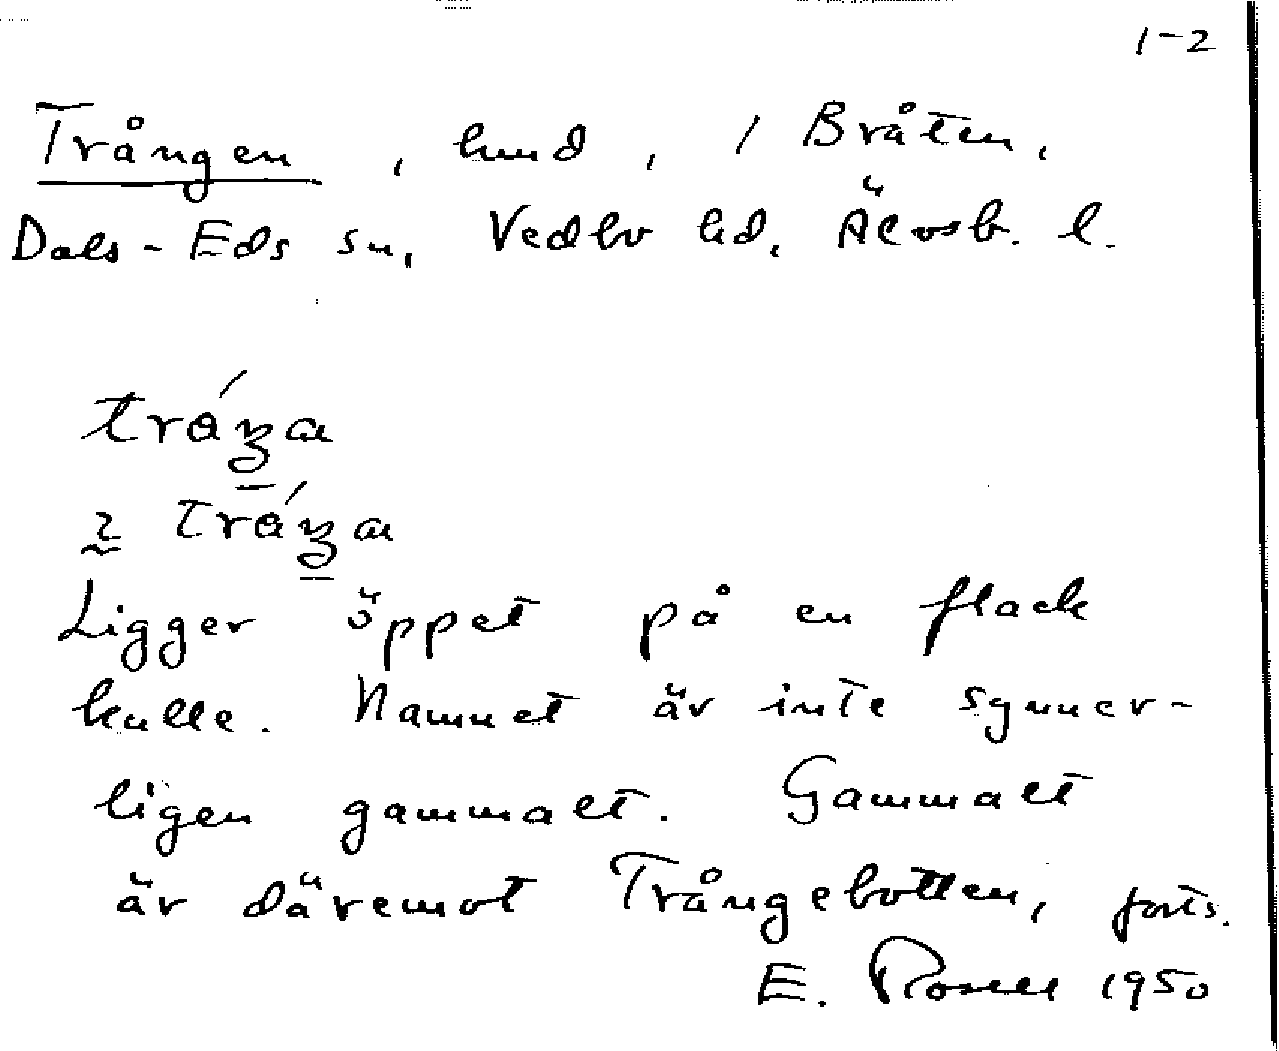 1-2
Trången, lund, / Bråten,
Dals-Eds sn, Vedbo hd, Älvsb. l.
Ligger öppet på en flack
kulle. Namnet är inte synner-
ligen gammalt. Gammalt
är däremot Trångebotten, forts.
E. Rosell 1950